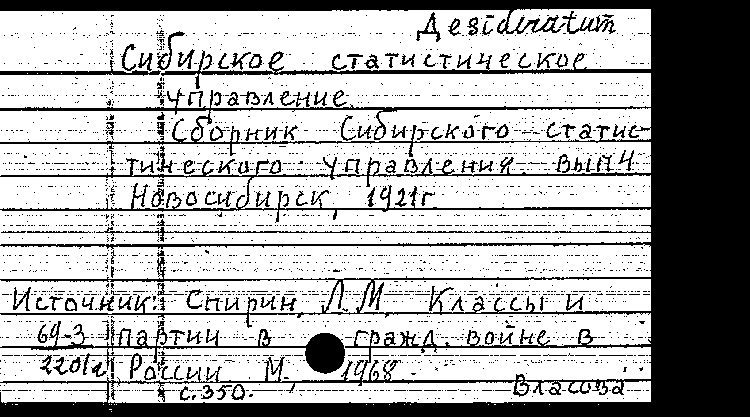 Дesideratum
Сибирское статистическое
управление.
Сборник Сибирского статис-
тического управления. вып 4
Новосибирск, 1921г.
Источник: Спирин, Л.М. Классы и
69-3 партии в гражд. войне в
России М., 1968.
с.350. Власова